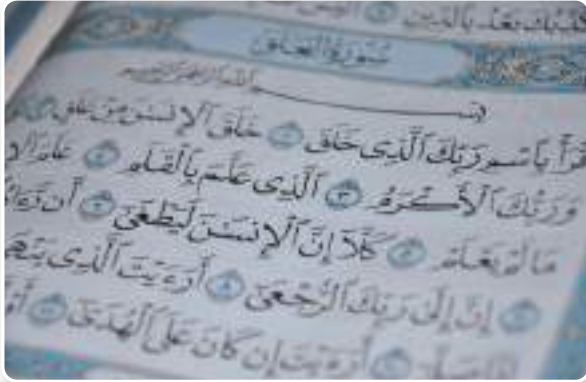 بَعْدُ بِٱلدِّينِ
سُورَةُ ٱلْعَلَقِ
بِسْمِ ٱللَّهِ ٱلرَّحْمَٰنِ ٱلرَّحِيمِ
بِٱسْمِ رَبِّكَ ٱلَّذِى خَلَقَ ١ خَلَقَ ٱلْإِنسَٰنَ مِنْ عَلَقٍ
وَرَبُّكَ ٱلْأَكْرَمُ ٣ ٱلَّذِى عَلَّمَ بِٱلْقَلَمِ ٤
مَا لَمْ يَعْلَمْ ٥ كَلَّآ إِنَّ ٱلْإِنسَٰنَ لَيَطْغَىٰٓ ٦ أَن
إِنَّ إِلَىٰ رَبِّكَ ٱلرُّجْعَىٰٓ ٨ أَرَءَيْتَ ٱلَّذِى
أَرَءَيْتَ إِن كَانَ عَلَى ٱلْهُدَىٰٓ